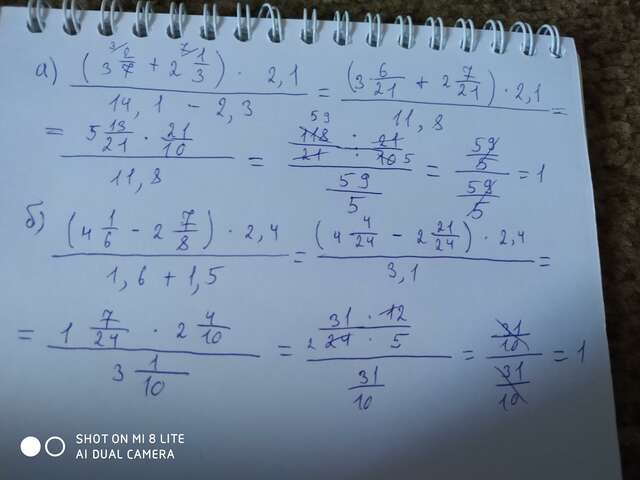 а) ((3 2/7 + 2 1/3) · 2,1) / (14,1 - 2,3) = ((3 6/21 + 2 7/21) · 2,1) / 11,8 =
= (5 13/21 · 21/10) / 11,8 = ((118 · 21) / (21 · 10)) / (59/5) = (59/5) / (59/5) = 1
б) ((4 1/6 - 2 7/8) · 2,4) / (1,6 + 1,5) = ((4 4/24 - 2 21/24) · 2,4) / 3,1 =
= (1 7/24 · 2 4/10) / (3 1/10) = ((31 · 12) / (24 · 5)) / (31/10) = (31/10) / (31/10) = 1
SHOT ON MI 8 LITE
AI DUAL CAMERA